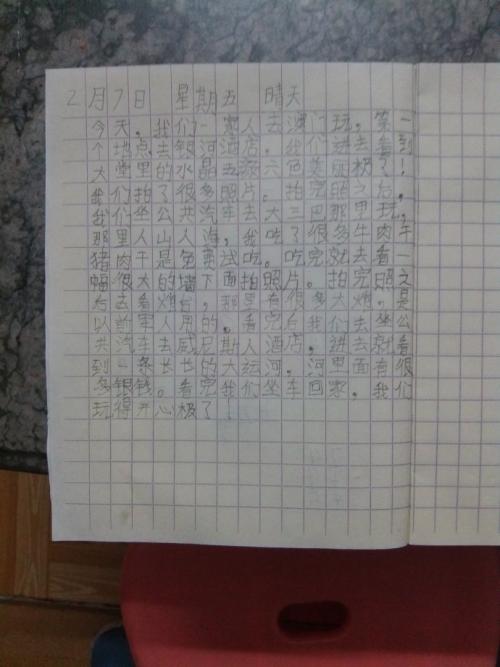 2月7日 星期五 晴天
今天，我们一家人去澳门玩。第一
个地点去银河酒店。我们进去看到
大堂里的水晶五颜六色美丽极了！
我们拍了很多照片。拍完照之后，
我们坐公共汽车去大三巴那里玩，
那里人山人海，我吃了很多牛肉干
猪肉干是免费试吃。吃完就去看一
幅很大的墙下面拍照片。拍完照之
后去看炮台，那里有很多大炮。是
以前军人用的。看完后我们去坐公
共汽车去威尼斯人酒店。进去就看
到一条长长的大运河。河里面有很
多银钱。看完我们坐车回家。我们
玩得开心极了！